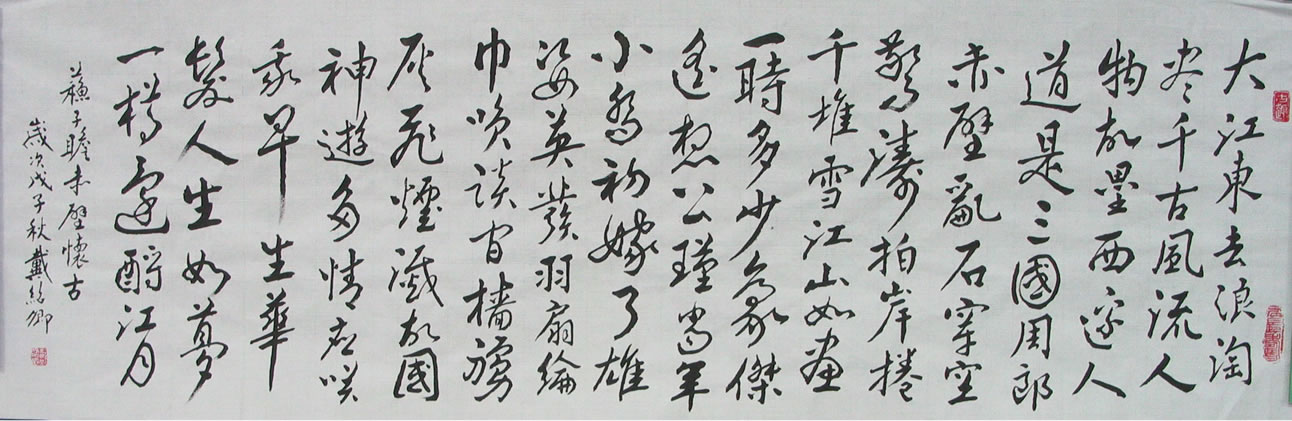 大江東去浪淘
尽千古風流人
物故壘西邊人
道是三國周郎
赤壁亂石穿空
驚濤拍岸捲
千堆雪江山如畫
一時多少豪傑
遙想公瑾當年
小喬初嫁了雄
姿英發羽扇綸
巾笑談间檣虜
灰飛煙滅故國
神遊多情應笑
我早生華
髮人生如夢
一樽還酹江月
蘇子瞻赤壁懷古
歲次戊子秋戴紹卿